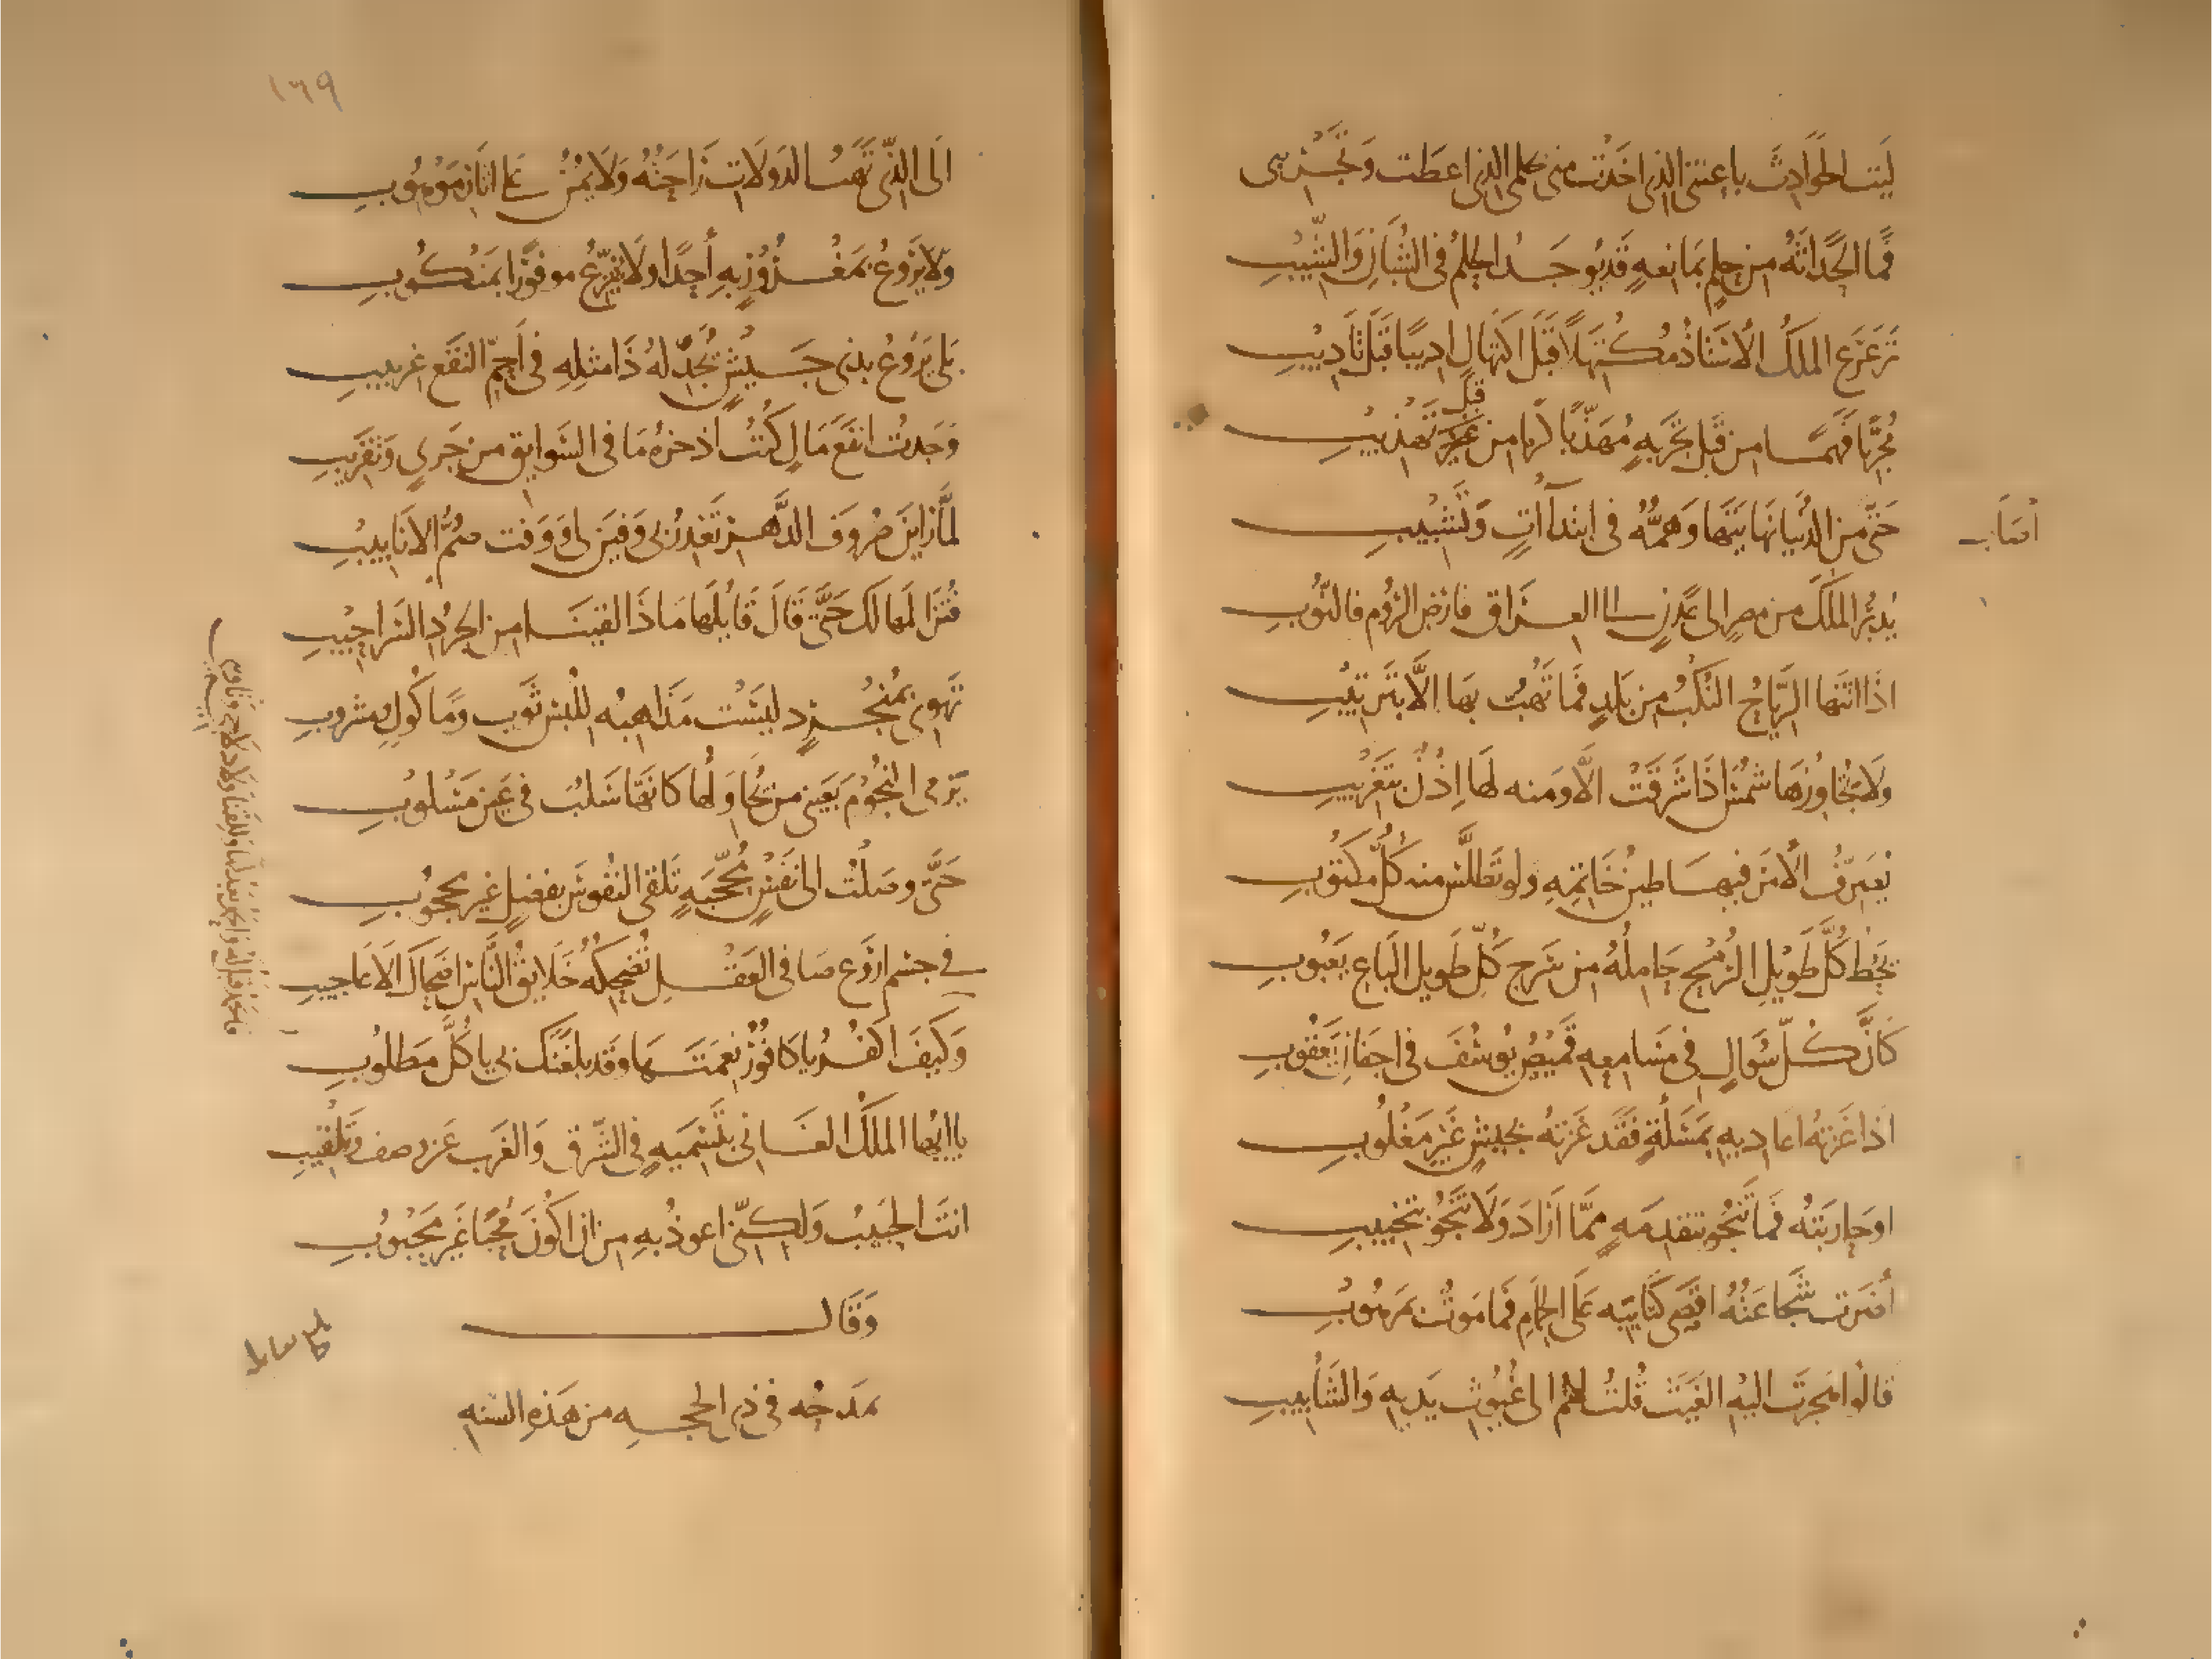 لَيتَ الحَوَادِثَ باعتنى الذى اخَذَت منى بحلمى الذى اعطَت وَتجْريبى
فَما الحَداثَهُ من حِلمٍ بمَانعهٍ قَد يُوجَدُ الحِلمُ فى الشُبّانِ وَالشّيْبِ
تَرَعرَعَ المَلكُ الأُستاذُ مُكتَهلاً قَبلَ اكتهالٍ اديبًا قَبلَ تَأديْبِ
مُجَرَّبًا فَهِمًا من قَبلِ تَجربَهٍ مُهَذَّبًا كَرَمًا من غيرِ تَهْذيْبِ
قبل
حَتَّى من الدُنيا نهَايَتَها وَهَمُّهُ فى ابتدآآتٍ وَتَشْبْيبِ
أصَاب
يُدبّرُ المُلكَ من مصرٍ الى عَدَنٍ الى العراق فارضِ الرُوم فالنُّوبِ
اذَا اتَتها الرّياحُ النُكبُ من بَلدٍ فَما تَهُبُّ بهَا الَّا بتَرتيْبِ
وَلَا تجُاوزُهَا شمسٌ اذَا شَرقَتْ الَّا وَمنه لهَا اِذْنٌ بتَغريْبِ
يُصَرّفُ الأَمرَ فيهَا طينُ خَاتمِهِ ولو تَطلَّسَ منه كُلُّ مكتُوبِ
يَحُط كُلَّ طَوْيلِ الرُمحِ حَاملُهُ من سَرجِ كُلِّ طَويلِ البَاعِ يَعْبُوبِ
كَانَّ كُلّ سُوَالٍ فى مَسَامعهِ قَميْصُ يوسُفَ فى اجفَانِ يَعقُوبِ
اذَا غَزَتهُ اعَاديهِ بمَسَلَةٍ فَقَد غَزَتهُ بجيشٍ غَيرِ مَغلُوبِ
اوحَارَبتهُ فَما تَنْجُو بتقدمَهٍ ممَّا ارَادَ وَلَا تَنجُو بتَجبيبِ
أضرَت شَجَاعَتُهُ اقصَى كَتَايبهِ عَلَى الحمَامِ فَما مَوتٌ بمَرهُوبِ
قالُوا هَجرَت اليْهِ الغَيثَ قُلتُ لهُم الى غُيُوث يَديهِ وَالشَأبيبِ
١٦٩
الَى الذّى تَهَبُ الدَولَات رَاحَتُهُ وَلَا يمُنُّ على اثَارِ مَوْهوُبِ
وَلَا يَرُوعُ بمَغدُورٍ بهِ أحَدًا ولَا يفزّعُ موفوْرًا بمَنكُوبِ
بَلى يَرُوعُ بذى جَيشٍ يُجَدّلهُ ذَا مثلِهِ فى اَحمّ النقَعِ غربيبِ
وَجَدتُ انفَعَ مَالٍ كُنتُ اذخرُهُ مَا فى السَوابِق من جَرىٍ وَتَقريبِ
لمَّا رَاينَ صُرُوفَ الدَّهرِ تَغدرُ بى وَفيَنَ لى وَوَفت صُمُّ الانَابيبِ
فُتنَ المهَالكَ حَتَّى قَالَ قَايلُهَا مَاذَا لقينَا من الجُردِ السَراحيْبِ
تَهوِى بمُنجَرِدٍ ليسَتْ مَذَاهبُه للُبسِ ثَوبٍ وَماكُولٍ ومشروبِ
يَرمى النجُومَ بَعينى من يُحَاولُها كَانَّهَا سَلبٌ فى عَينِ مَسْلوُبِ
حَتَّى وصَلْتُ الى نَفسٍ مُحَجّبهٍ تَلقَى النُفوسَ بفضلٍ غيرِ محجوُبِ
فى جسْمِ اروَعَ صَافى العَقلِ تُضحِكُهُ خَلَايقُ النَّاسِ اضحَاكَ الاَعَاجيبِ
وَكَيفَ اكفُرُ يا كافُوْرُ نعمَتَهَا وَقد بلغَنَكَ بى يا كُلَّ مَطلوُبِ
ياايُّها المَلكُ الغَانى بتَسْميهٍ فى الشّرقِ وَالغَربِ عَن وصفٍ وَتَلقيبِ
انتَ الحَبيبُ وَلكنّى اعوذُ بهِ من ان اكُونَ مُحبًّا غَيرَ مَحبُوْبِ
وَقَال
يمدَحُه فى ذى الحجه من هَذهِ السنه